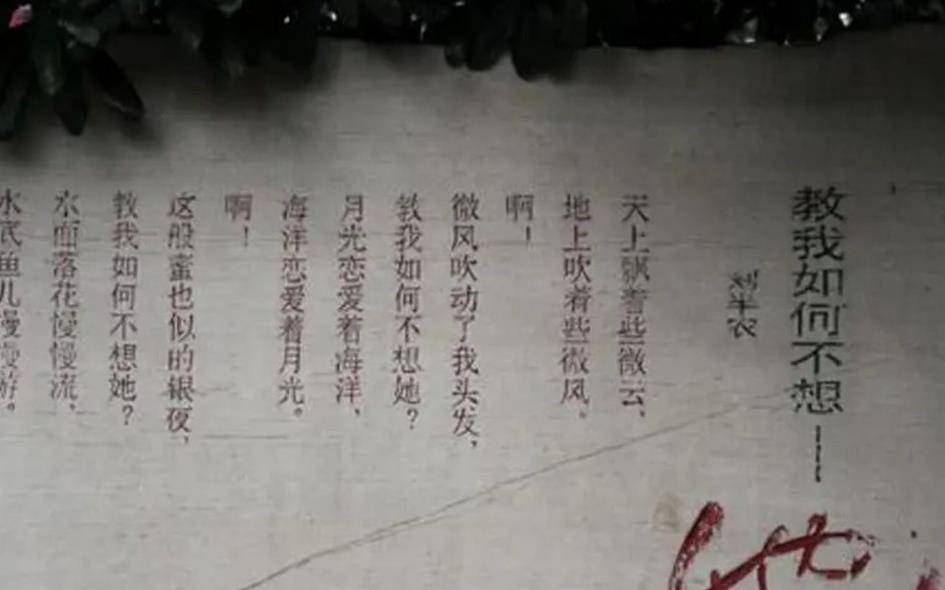 教我如何不想——
她
刘半农
天上飘着些微云，
地上吹着些微风。
啊！
微风吹动了我头发，
教我如何不想她？
月光恋爱着海洋，
海洋恋爱着月光。
啊！
这般蜜也似的银夜，
教我如何不想她？
水面落花慢慢流，
水底鱼儿慢慢游。